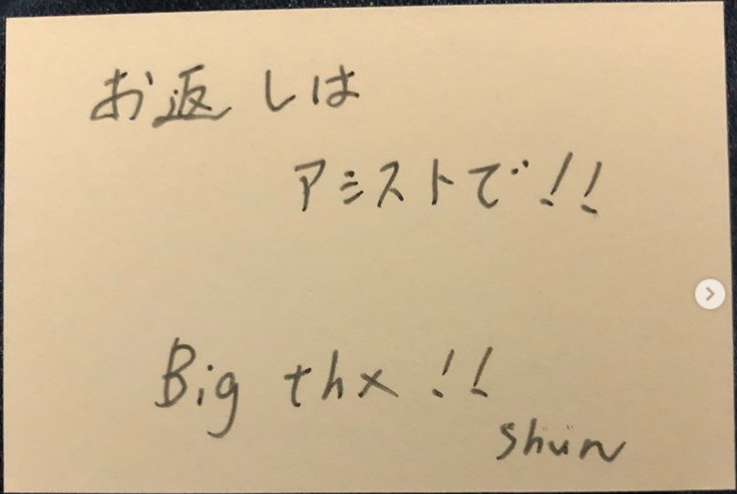 お返しは
アシストで!!
Big thx !!
shun